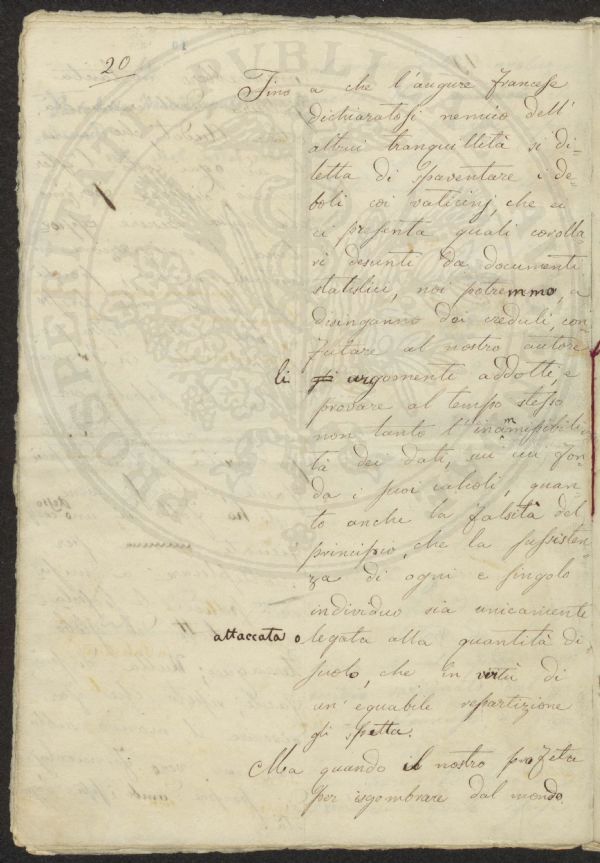 20
Fino a che l'augure francese
dichiaratosi nemico dell'
altrui tranquillità si di-
letta di spaventare i de-
boli coi vaticinj, che ei
ci presenta quali corolla-
rj desunti da documenti
statistici, noi potremmo, a
disinganno dei creduli, con
futare al nostro autore
li gli argomenti addotti, e
provare al tempo stesso
non tanto l'inammissibili
tà dei dati, su cui fon-
da i suoi calcoli, quan
to anche la falsità del
principio, che la sussisten-
za di ogni e singolo
individuo sia unicamente
attaccata o legata alla quantità di
suolo, che in virtù di
un' equabile repartizione
gli spetta.
Ma quando il nostro profeta
per isgombrare dal mondo